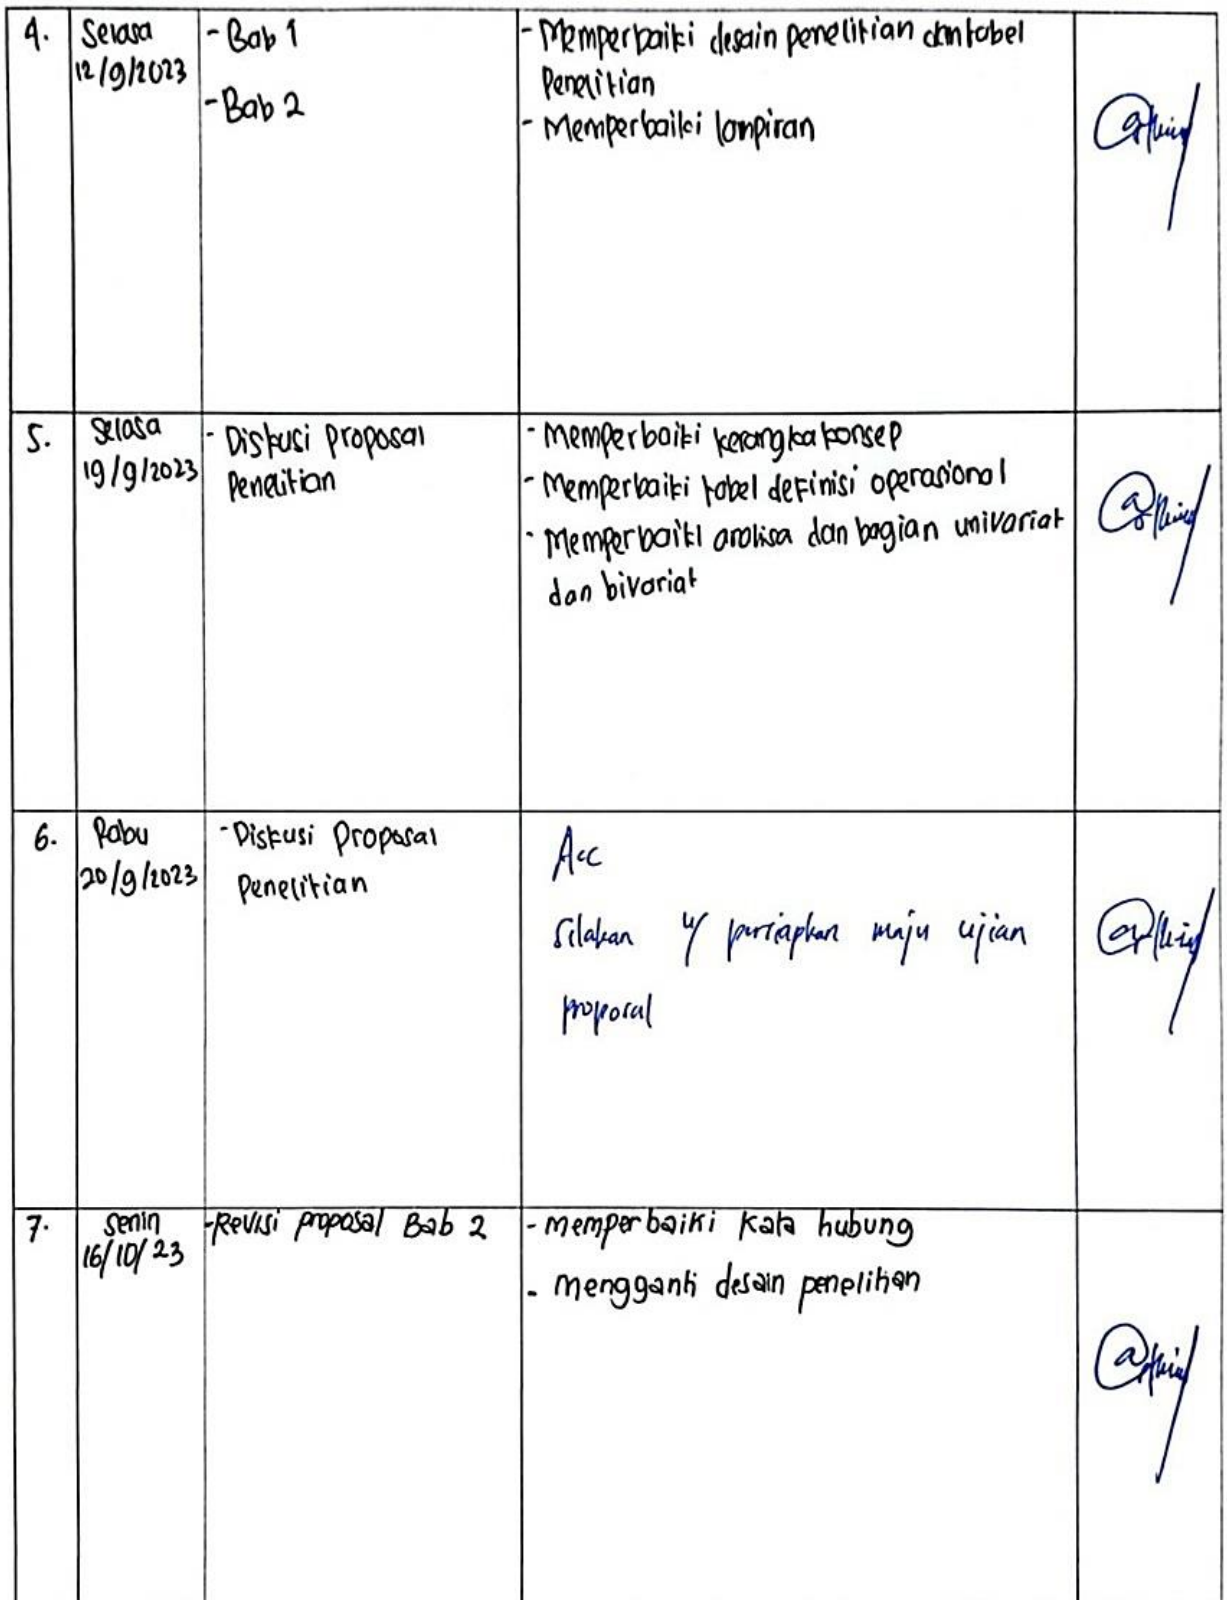 4.
Selasa
12/9/2023
- Bab 1
- Bab 2
- Memperbaiki desain penelitian dan tabel
Penelitian
- Memperbaiki lampiran
5.
Selasa
19/9/2023
- Diskusi proposal
Penelitian
- Memperbaiki kerangka konsep
- Memperbaiki tabel definisi operasional
- Memperbaiki analisa dan bagian univariat
dan bivariat
6.
Rabu
20/9/2023
- Diskusi Proposal
Penelitian
Acc
Silakan u/ persiapkan maju ujian
proposal
7.
Senin
16/10/23
- Revisi proposal Bab 2
- memperbaiki kata hubung
- mengganti desain penelitian